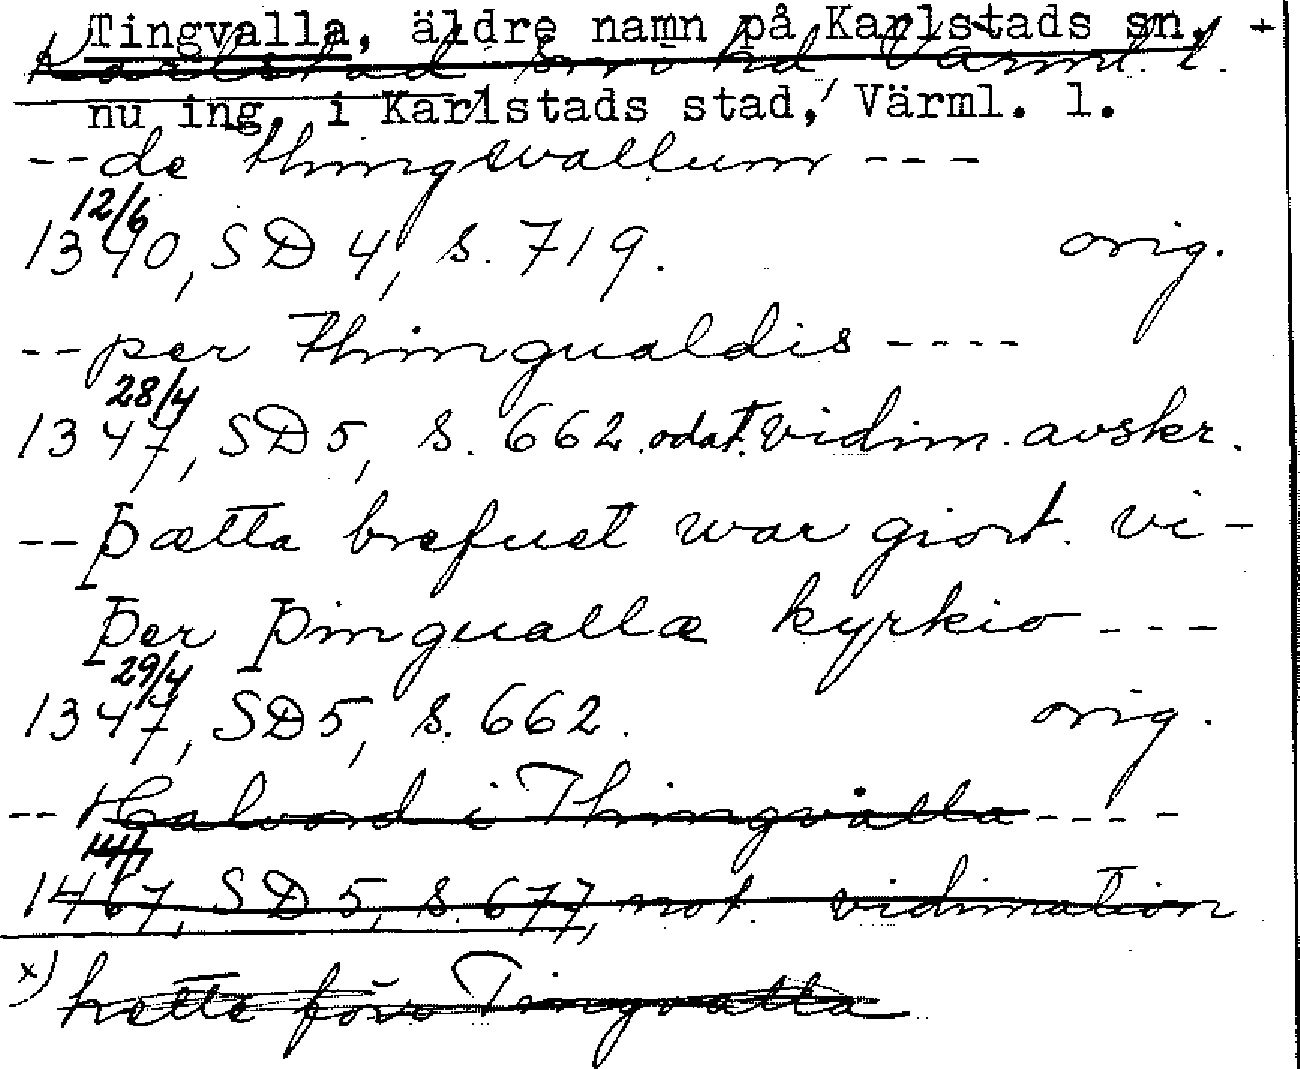 Tingvalla, äldre namn på Karlstads sn, +
Karlstad sn o hd Värml. l.
nu ing. i Karlstads stad, Värml. l.
--de thingwallum ---
12/6
1340, SD 4, s. 719. orig.
--per thingualdis ----
28/4
1347, SD 5, s. 662. odat. vidim. avskr.
--þætta brefuet war giort vi-
þer þingualla kyrkio ---
29/4
1347, SD 5, s. 662. orig.
--Halvord i Thingvalla ----
14/7
1467, SD 5, s. 677, not. vidimation
x) hette förr Tingvalla